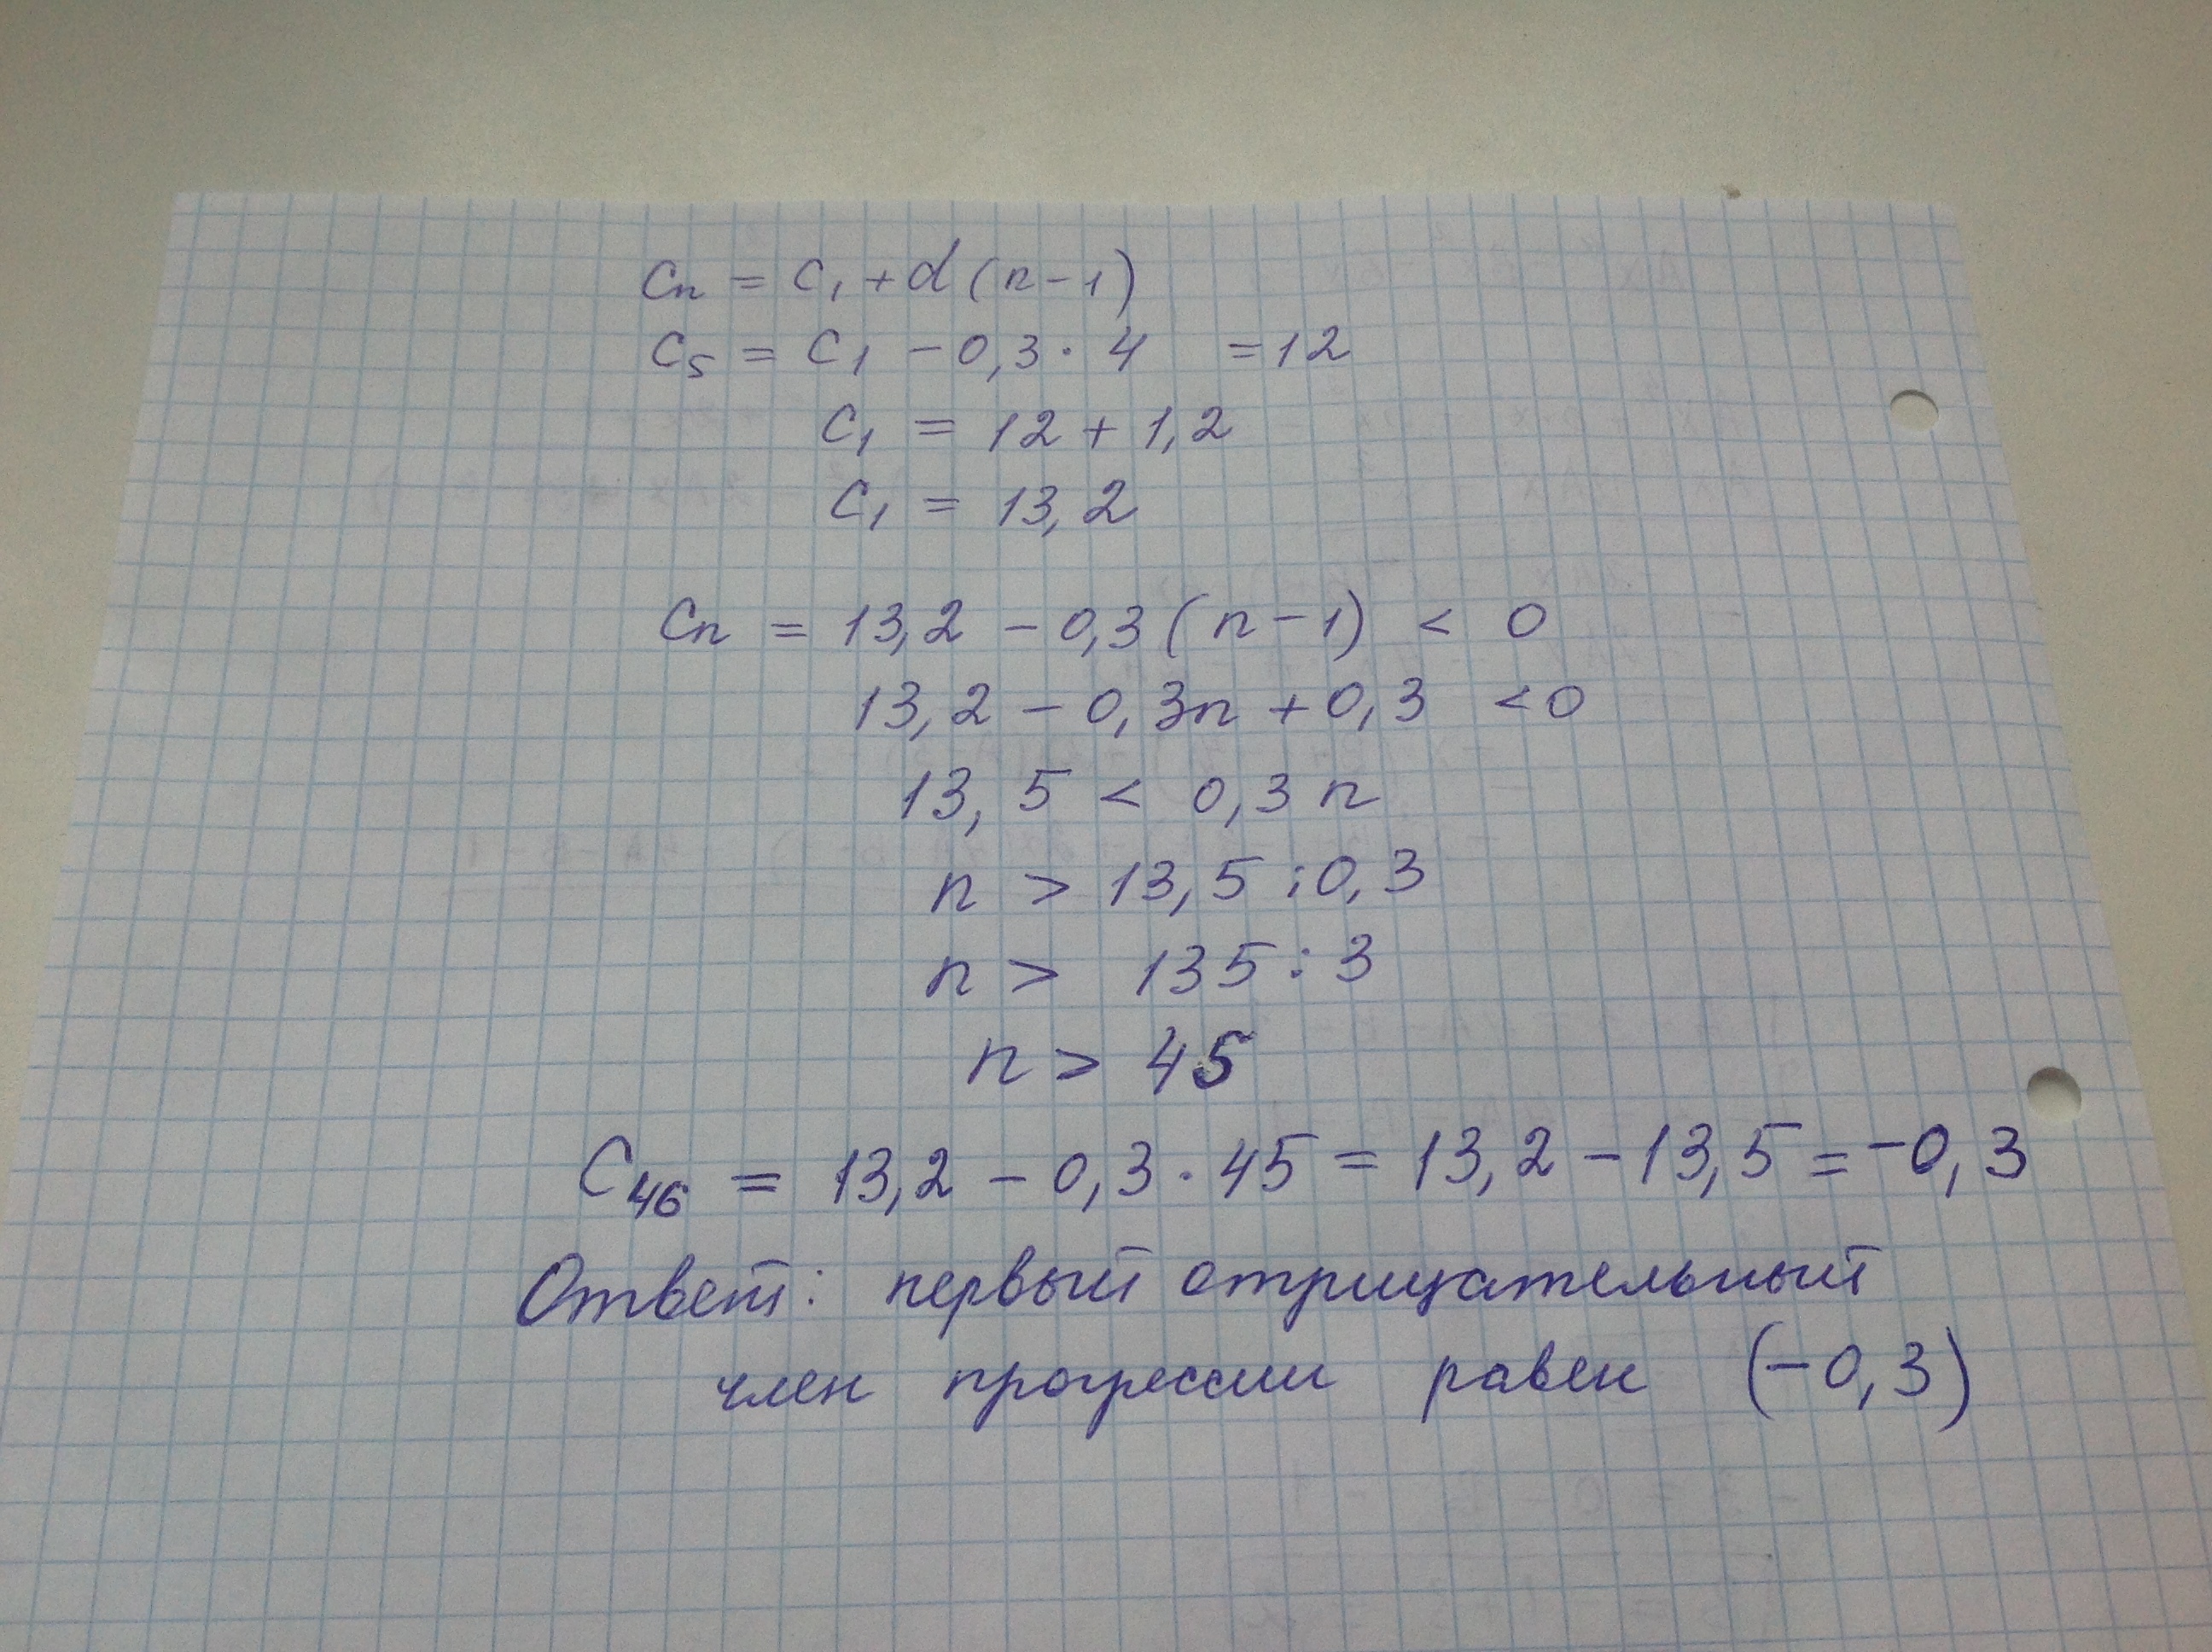 Cn = C₁ + d (n - 1)
C₅ = C₁ - 0,3 · 4 = 12
C₁ = 12 + 1,2
C₁ = 13,2
Cn = 13,2 - 0,3 (n - 1) < 0
13,2 - 0,3n + 0,3 < 0
13,5 < 0,3 n
n > 13,5 : 0,3
n > 135 : 3
n > 45
C₄₆ = 13,2 - 0,3 · 45 = 13,2 - 13,5 = -0,3
Ответ: первый отрицательный
член прогрессии равен (-0,3)